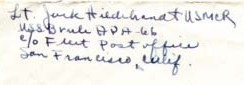 Lt. Jack Hildebrandt USMCR
USS Brule APA-66
c/o Fleet Post office
San Francisco, Calif.